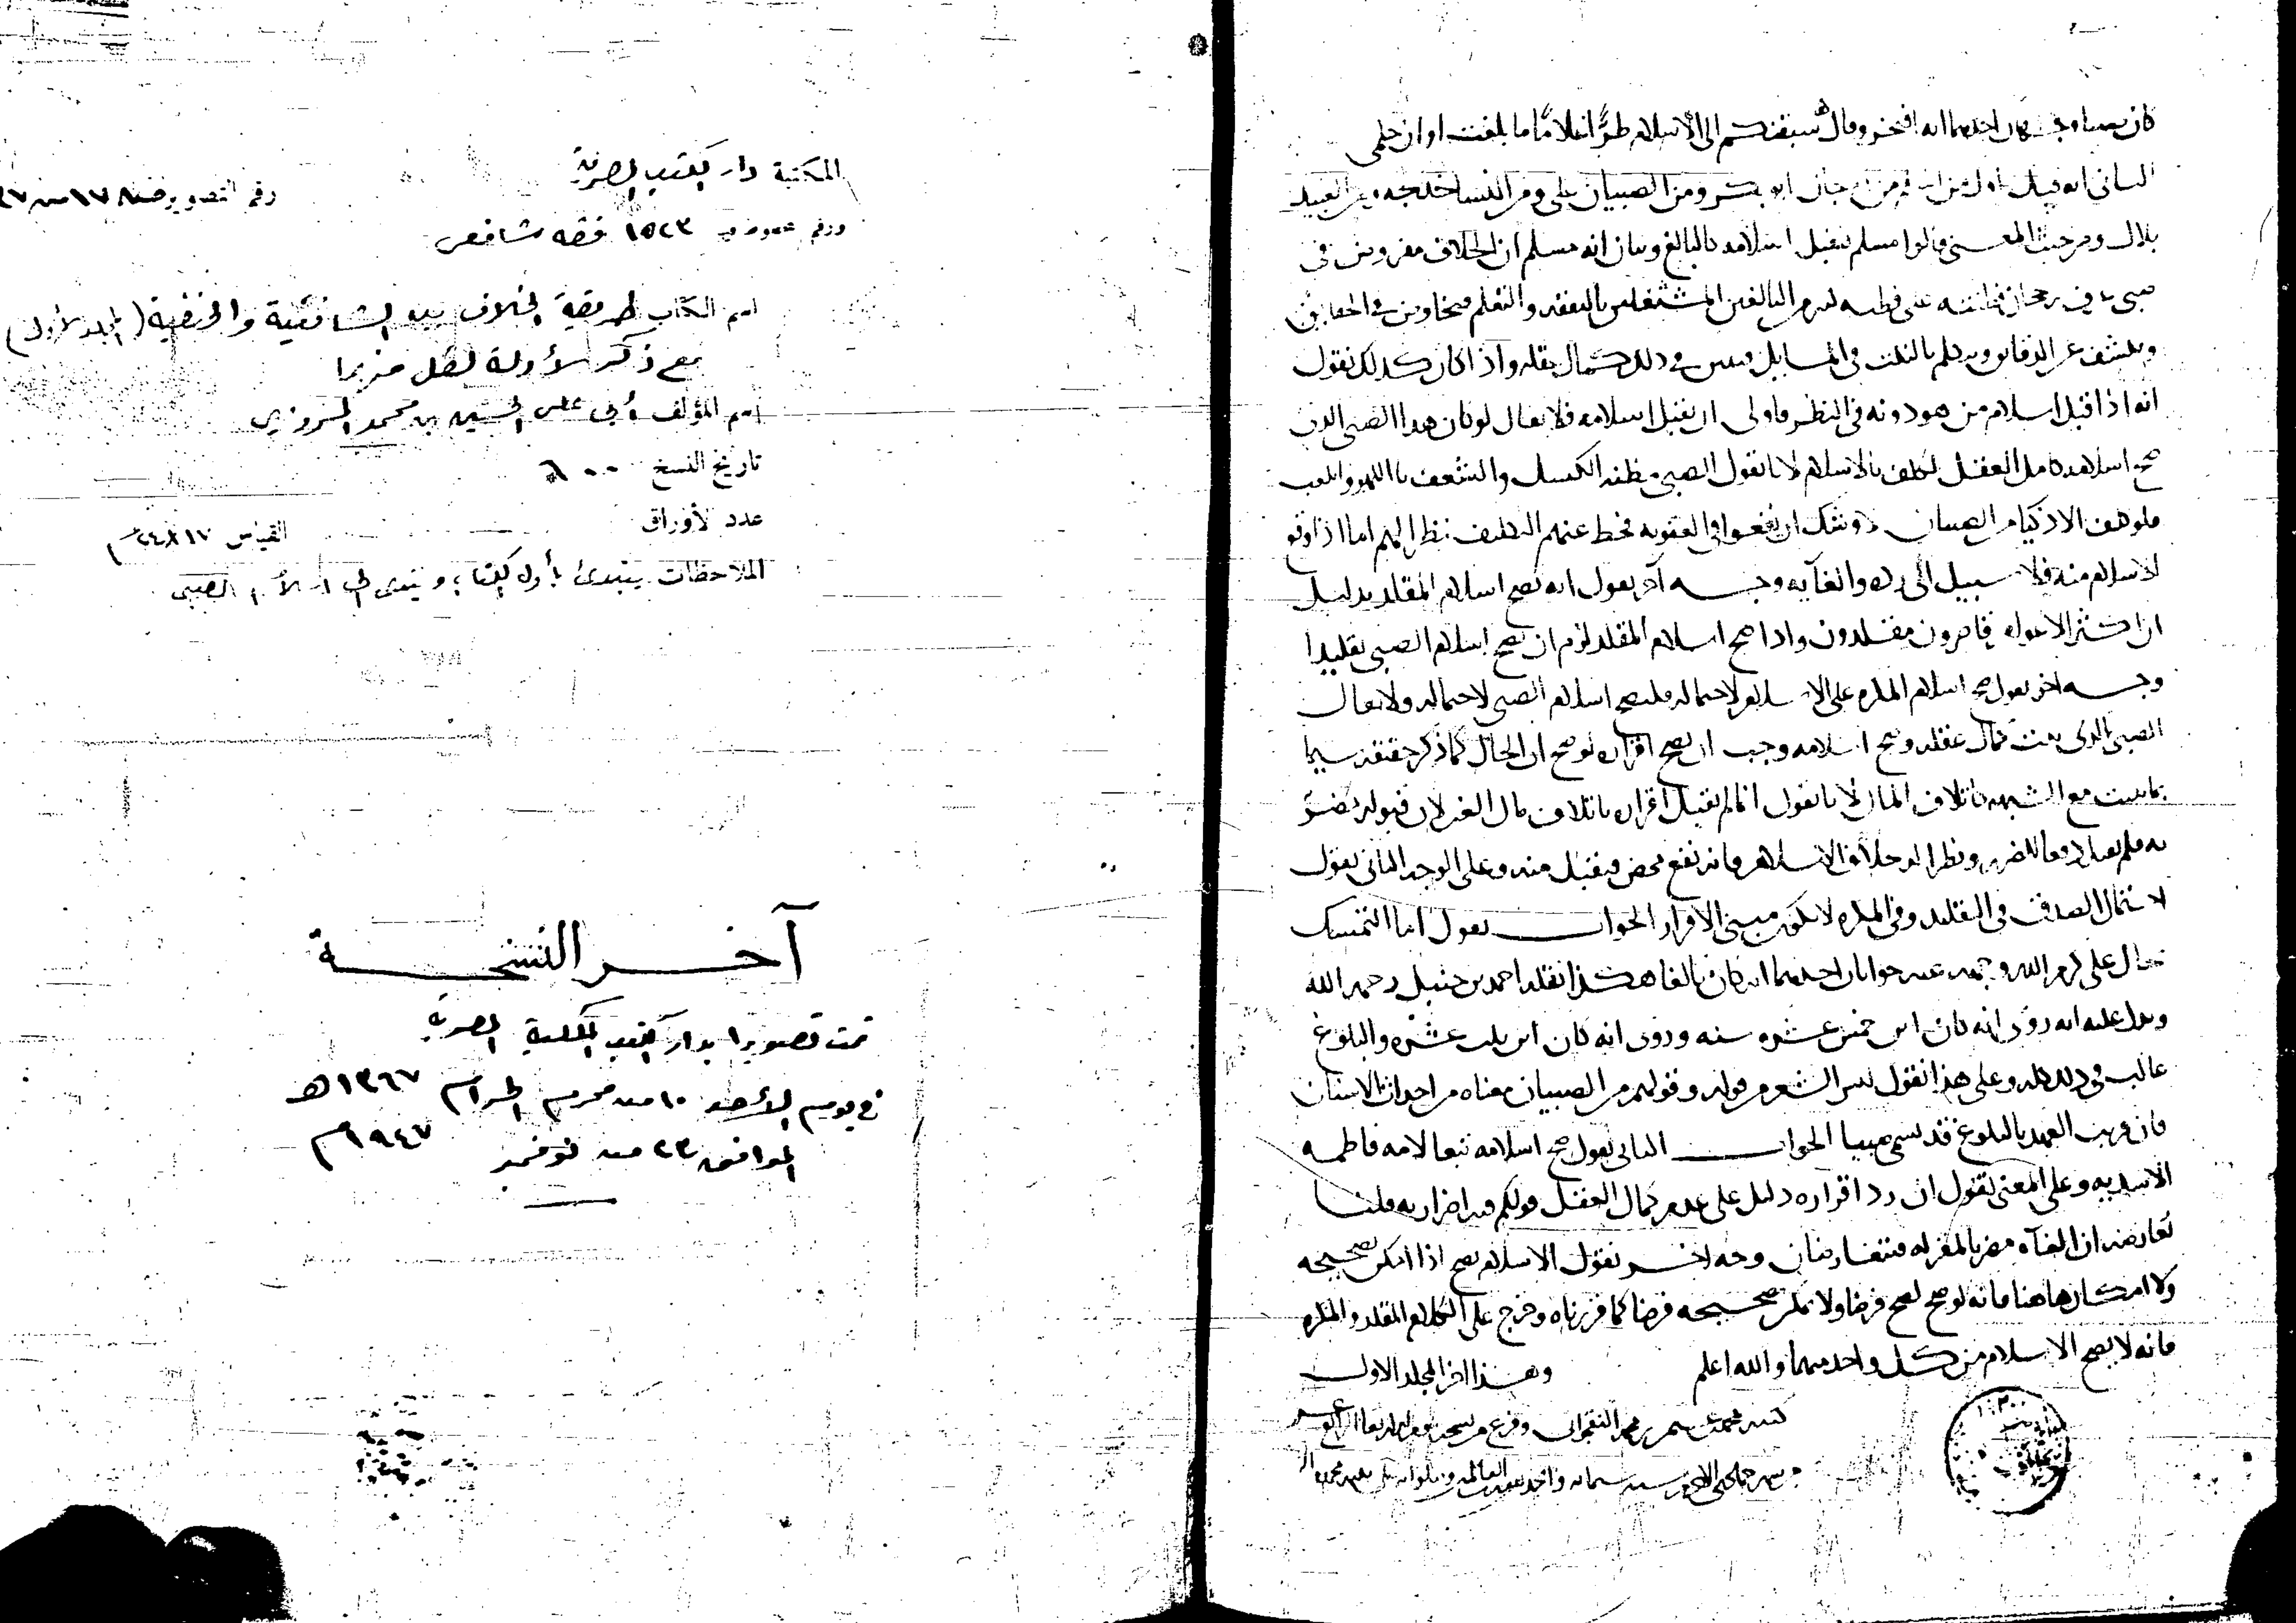 كان صبيا وجهان احدهما انه افتخر وقال سبقتكم الى الاسلام طرّا غلامًا ما بلغت اوان حلمي
الثاني انه قيل اول من اسلم من الرجال ابو بكر ومن الصبيان علي ومن النسا خديجه ومن العبيد
بلال ومن حيث المعنى قالوا مسلم فيقبل اسلامه كالبالغ وبيان انه مسلم ان الخلاف مفروض في
صبي على فطنه من البالغين المشتغلين بالتفقه والتعلم في الحقايق
ويكشف عن الدقايق ويتكلم بالثلث في المسايل فتبين في ذلك كمال عقله واذا كان كذلك نقول
انه اذا قبل اسلام من هو دونه في النظر فاولى ان يقبل اسلامه فلا يقال لو كان هذا الصبي الذي
صح اسلامه كامل العقل لكلف بالاسلام لانا نقول الصبي مظنه الكسل والشعف باللهو واللعب
فلو كلف الاذكيا من الصبيان لاوشك ان يقعوا في العقوبه فحط عنهم التكليف نظرا لهم اما اذا
الاسلام منه فلا سبيل الى رده والغآيه وجه آخر نقول انه يصح اسلام المقلد بدليل
ان اكثر الاعوام قاصرون مقلدون واذا صح اسلام المقلد لزم ان يصح اسلام الصبي تقليدا
وجه اخر نقول صح اسلام المكره على الاسلام لاحتماله فليصح اسلام الصبي لاحتماله ولا يقال
الصبي الذي ثبت كمال عقله وصح اسلامه وجب ان يصح اقراره لو صح ان الحال كما ذكر حقيقه سيما
بما يثبت مع الشبهه كاتلاف المال لانا نقول انما لم يقبل اقراره باتلاف مال الغير لان قبوله يضر
به فلم يقبل دفعا للضرر ونظرا له بخلاف الاسلام فانه نفع محض فيقبل منه وعلى الوجه الثاني نقول
لاحتمال الصدق في التقليد وفي المكره لا يكون مبنى الاقرار الجواب نقول اما التمسك
بحال علي كرم الله وجهه عنه جوابان احدهما انه كان بالغا هكذا نقله احمد بن حنبل رحمه الله
ويدل عليه انه روى انه كان ابن خمس عشره سنه وروى انه كان ابن ثلث عشره والبلوغ
غالب في ذلك كله وعلى هذا نقول ليس الشعر من قوله وقولهم من الصبيان معناه من احداث الاسنان
فان قريب العهد بالبلوغ قد يسمى صبيا الجواب الثاني نقول صح اسلامه تبعا لامه فاطمه
الاسديه وعلى المعنى نقول ان رد اقراره دليل على عدم كمال العقل قولكم فيه اضرار به قلنا
نعارضه ان الغآه مضر بالمقر له فيتعارضان وجه اخر نقول الاسلام يصح اذا امكن تصحيحه
ولا امكان هاهنا فانه لو صح لصح فرضا ولا يمكن تصحيحه فرضا كما قررناه وخرج على الكلام المقلد والمكره
فانه لا يصح الاسلام من كل واحد منهما والله اعلم وهذا اخر المجلد الاول
كتبه محمد بن عمر بن محمد وفرغ من نسخه
المكتبة دار الكتب المصرية
رقم التصوير
ورقم خصوصية ١٥٢٣ فقه شافعى
اسم الكتاب طريقة الخلاف بين الشافعية والحنفية (المجلد الأول)
مع ذكر الأدلة لكل منهما
اسم المؤلف أبى على الحسين بن محمد المروزى
تاريخ النسخ
عدد الأوراق القياس ١٧×٢٤ سم
الملاحظات يبتدئ بأول الكتاب وينتهى إلى اسلام الصبى
آخر النسخة
تمت تصويرا بدار الكتب الملكية المصرية
فى يوم الأحد ١٠ من محرم الحرام ١٣٦٧ هـ
الموافق ٢٣ من نوفمبر ١٩٤٧ م